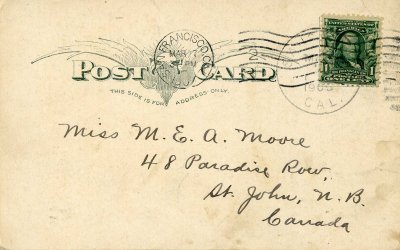 SAN FRANCISCO, CAL.
MAR
PM
POST CARD.
THIS SIDE IS FOR ADDRESS ONLY.
CAL.
1
Miss M. E. A. Moore
48 Paradise Row,
St. John, N. B.
Canada